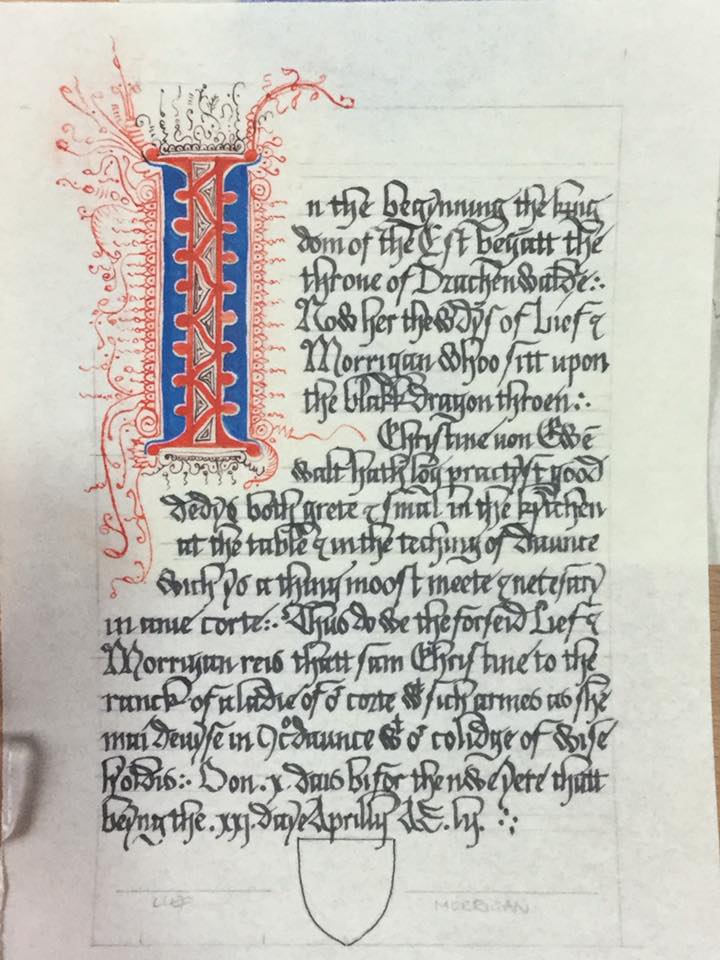 In the begynnyng the kyng
dom of the Est begatt the
throne of Drachenwalde:.
Now her the wdys of Lief &
Morrigan whoo sitt upon
the blakk dragon throen:.
Christine von Ewe
walt hath log practyst good
dedys both grete & smal in the kytchen
at the table & in the teching of daunce
wich ys a thing moost meete & necesary
in anie corte:. Thus do we the forseid Lief &
Morrigan reis thatt sam Christine to the
ranck of a ladie of or corte wt sich armes as she
mai devyse in daunce wt or colidge of wise
holdis:. Don .x. dais bifor the nwe yere thatt
beyng the .xxi. daye Aprilly A.S. ly. :.
LIEF MORRIGAN